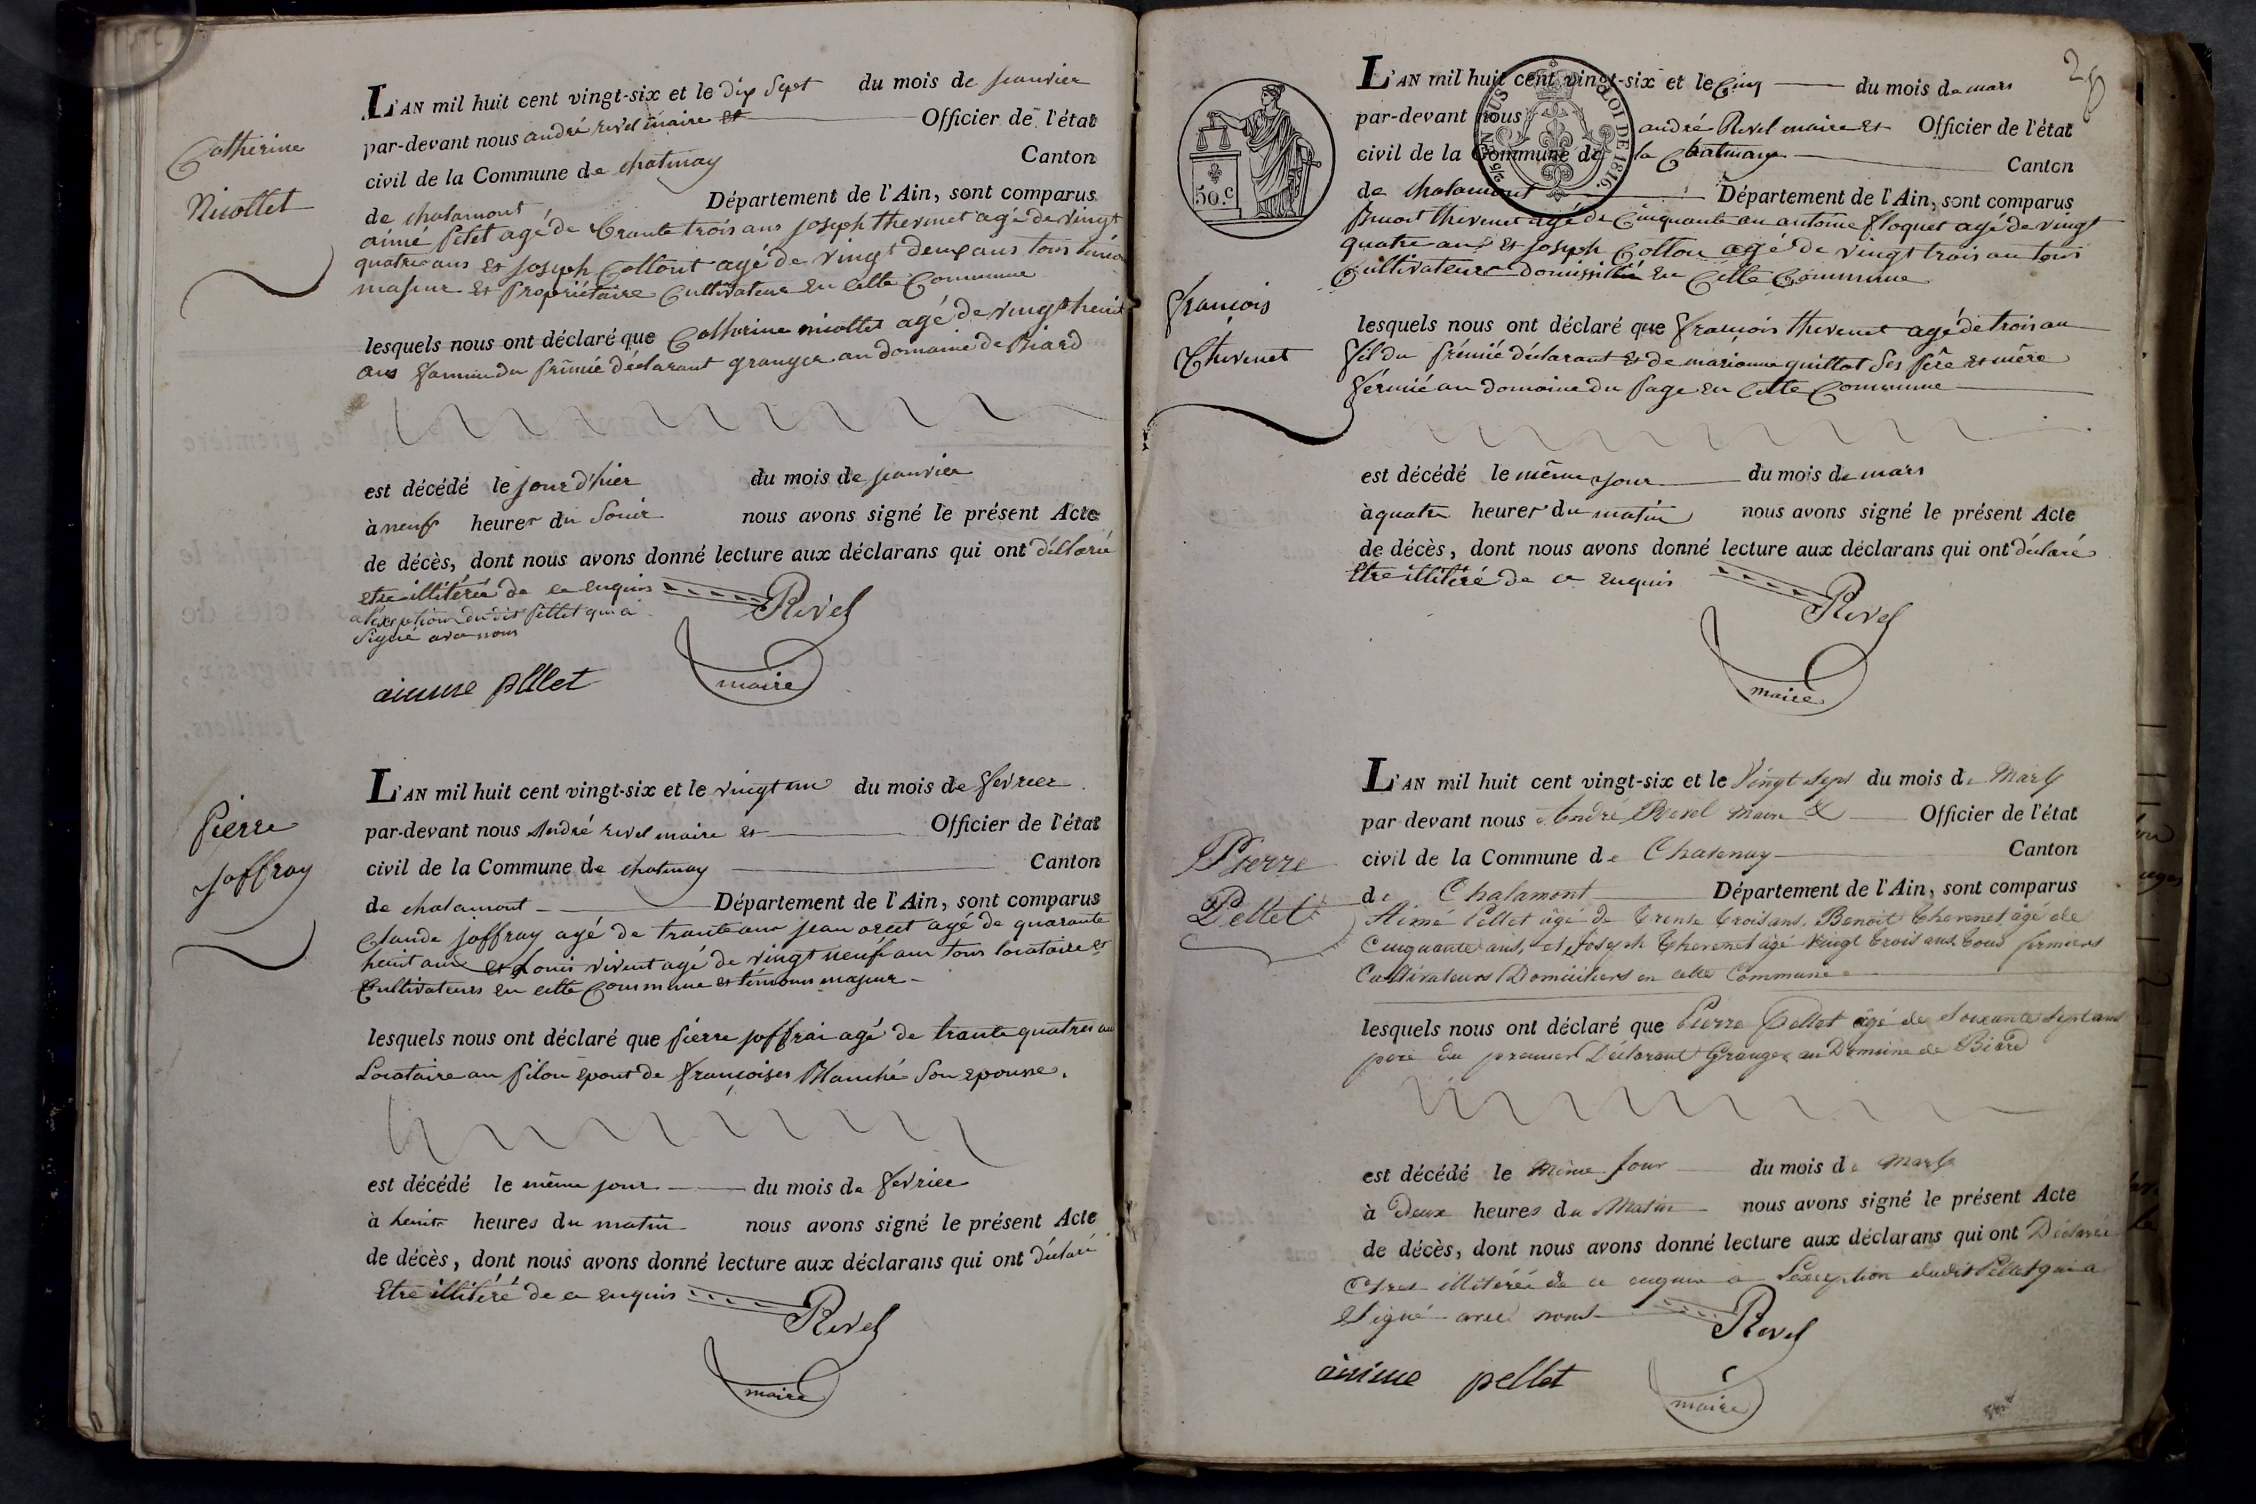 Catherine
Nicollet
L'AN mil huit cent vingt-six et le dix Sept du mois de Janvier
par-devant nous andré revel maire et Officier de l'état
civil de la Commune de chatenay Canton
de chalamont Département de l'Ain, sont comparus
aimé Pelet agé de trante trois ans joseph thevenet agé de vingt
quatre ans et joseph Collont agé de vingt deux ans tous
majeur et Propriétaire Cultivateur en cette Commune
lesquels nous ont déclaré que Catherine nicollet agé de vingt heuit
ans famme du prémié déclarant granger au domaine de Biard
est décédé le jour d'hier du mois de janvier
à neuf heures du Soir nous avons signé le présent Acte
de décès, dont nous avons donné lecture aux déclarans qui ont déclaré
etre illitéré de ce enquis
a l'exseption du dit Pellet qui a
Signé avec nous
Revel
maire
aimme pellet
Pierre
joffray
L'AN mil huit cent vingt-six et le vingt un du mois de fevrier
par-devant nous André revel maire et Officier de l'état
civil de la Commune de chatenay Canton
de chalamont Département de l'Ain, sont comparus
Claude joffray agé de trante ans jean agé de quarante
heuit ans et Louis vivent agé de vingt neuf ans tous locataire et
Cultivateurs en cette Commune et témoins majeur
lesquels nous ont déclaré que pierre joffrai agé de trante quatres an
Locataire au pilon epout de françoises Blanché Son epouse.
est décédé le même jour du mois de fevrier
à heuit heures du matin nous avons signé le présent Acte
de décès, dont nous avons donné lecture aux déclarans qui ont déclaré
Etre illitéré de ce enquis
Revel
maire
28
50.c
LOI DE 1816.
L'AN mil huit cent vingt-six et le Cinq du mois de mars
par-devant nous andré Revel maire et Officier de l'état
civil de la Commune de la Chatenay Canton
de chalamont Département de l'Ain, sont comparus
Benoit thevenet agé de Cinquante an antoine floquet agé de vingt
quatre ans et joseph Collon agé de vingt trois an tous
Cultivateurs domicilié en Cette Commune
françois
thevenet
lesquels nous ont déclaré que françois thevenet agé de trois an
fil du prémié déclarant et de marianne guillot Ses père et mère
fermié au domaine du page en Cette Commune
est décédé le même jour du mois de mars
à quatre heures du matin nous avons signé le présent Acte
de décès, dont nous avons donné lecture aux déclarans qui ont déclaré
Etre illitéré de ce enquis
Revel
maire
Pierre
Pellet
L'AN mil huit cent vingt-six et le Vingt Sept du mois de Mars
par-devant nous André Revel Maire & Officier de l'état
civil de la Commune de Chatenay Canton
de Chalamont Département de l'Ain, sont comparus
Aimé Pellet âgé de trente trois ans, Benoit Thevenet âgé de
Cinquante ans, et Joseph Thevenet âgé vingt trois ans tous fermiers
Cultivateurs Domiciliers en cette Commune
lesquels nous ont déclaré que Pierre Pellet âgé de Soixante Sept ans
pere du premier Déclarant Granger au Domaine de Biard
est décédé le même jour du mois de Mars
à Deux heures du Matin nous avons signé le présent Acte
de décès, dont nous avons donné lecture aux déclarans qui ont Déclaré
Etres illitérés de ce enquis à l'exception dudit Pellet qui a
Signé avec nous
Revel
maire
aimme pellet